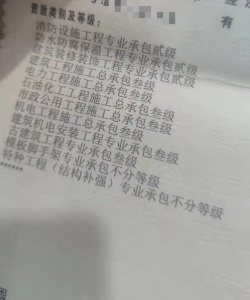 资质类别及等级：
有
消防设施工程专业承包贰级
防水防腐保温工程专业承包贰级
建筑装修装饰工程专业承包贰级
建筑工程施工总承包叁级
电力工程施工总承包叁级
石油化工工程施工总承包叁级
市政公用工程施工总承包叁级
机电工程施工总承包叁级
建筑机电安装工程专业承包叁级
古建筑工程专业承包叁级
模板脚手架专业承包不分等级
特种工程（结构补强）专业承包不分等级